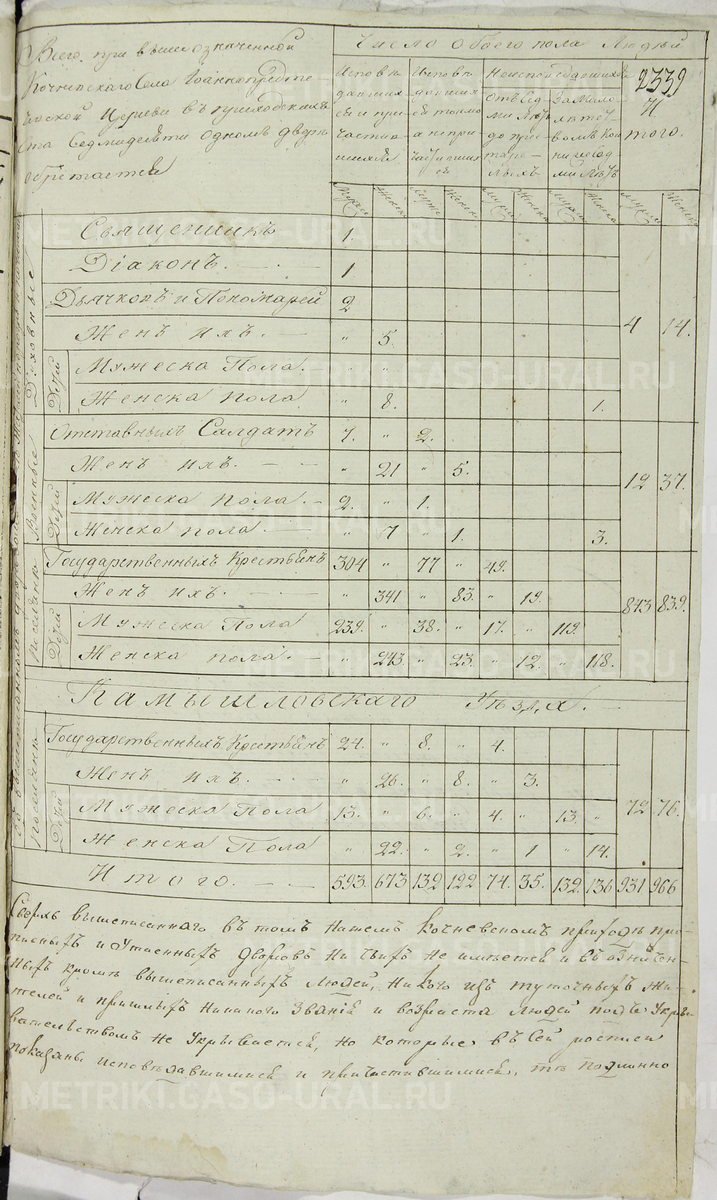 Всего при вышеозначенной
Кочневскаго Села Иоаннопредте
ческой Церкви въ приходскихъ
ста Семидесяти одномъ дворѣ
обрѣтается
Число обоего пола Людей
2339
Исповѣ давшихся и при частив шихся
Исповѣ давшихся токмо а непри частившихся
Неисповѣдавшихся
отъ Сед ми Лѣтъ до пре старѣлыхъ
За мало лѣтствомъ кои ниже Седми Лѣтъ
И того.
мужск женск мужск женск мужск женск мужск женск мужск женск
Духовные
Священникъ 1.
Діаконъ. 1
Дьячковъ и Пономарей 2
Женъ ихъ. " 5.
4 14.
Дѣти
Мужеска Пола. " "
Женска пола " 8. 1.
Военные
Отставныхъ Салдатъ 7. " 2.
Женъ ихъ. " 21 " 5.
12 37.
Дѣти
Мужеска пола. 2. " 1.
Женска пола " 7 " 1. 3.
Поселяне
Государственныхъ Крестьянъ 304 " 77 " 49.
Женъ ихъ. " 341 " 83. " 19.
843 839.
Дѣти
Мужеска Пола 239. " 38. " 17. " 119.
Женска пола. " 243. " 23. " 12. " 118.
Камышловскаго Уѣзда.
Поселяне
Государственныхъ Крестьянъ 24. " 8. " 4.
Женъ ихъ. " 26. " 8. " 3.
72 76.
Дѣти
Мужеска Пола 13. " 6. " 4. " 13. "
Женска Пола " 22. " 2. " 1 " 14.
Итого. 593. 673 132 122 74. 35. 132. 136 931 966
Сверхъ вышеписаннаго въ томъ нашемъ Кочневскомъ приходѣ про
писныхъ и утаенныхъ дворовъ ни чьихъ не имѣется и въ означен
ныхъ кромѣ вышеписанныхъ людей, никого изъ туточныхъ жи
телей и пришлыхъ никакого званія и возраста людей подъ укры
вательствомъ не укрывается, но которые въ сей росписи
показаны исповѣдавшимися и причастившимися, тѣ подлинно
METRIKI.GASO-URAL.RU